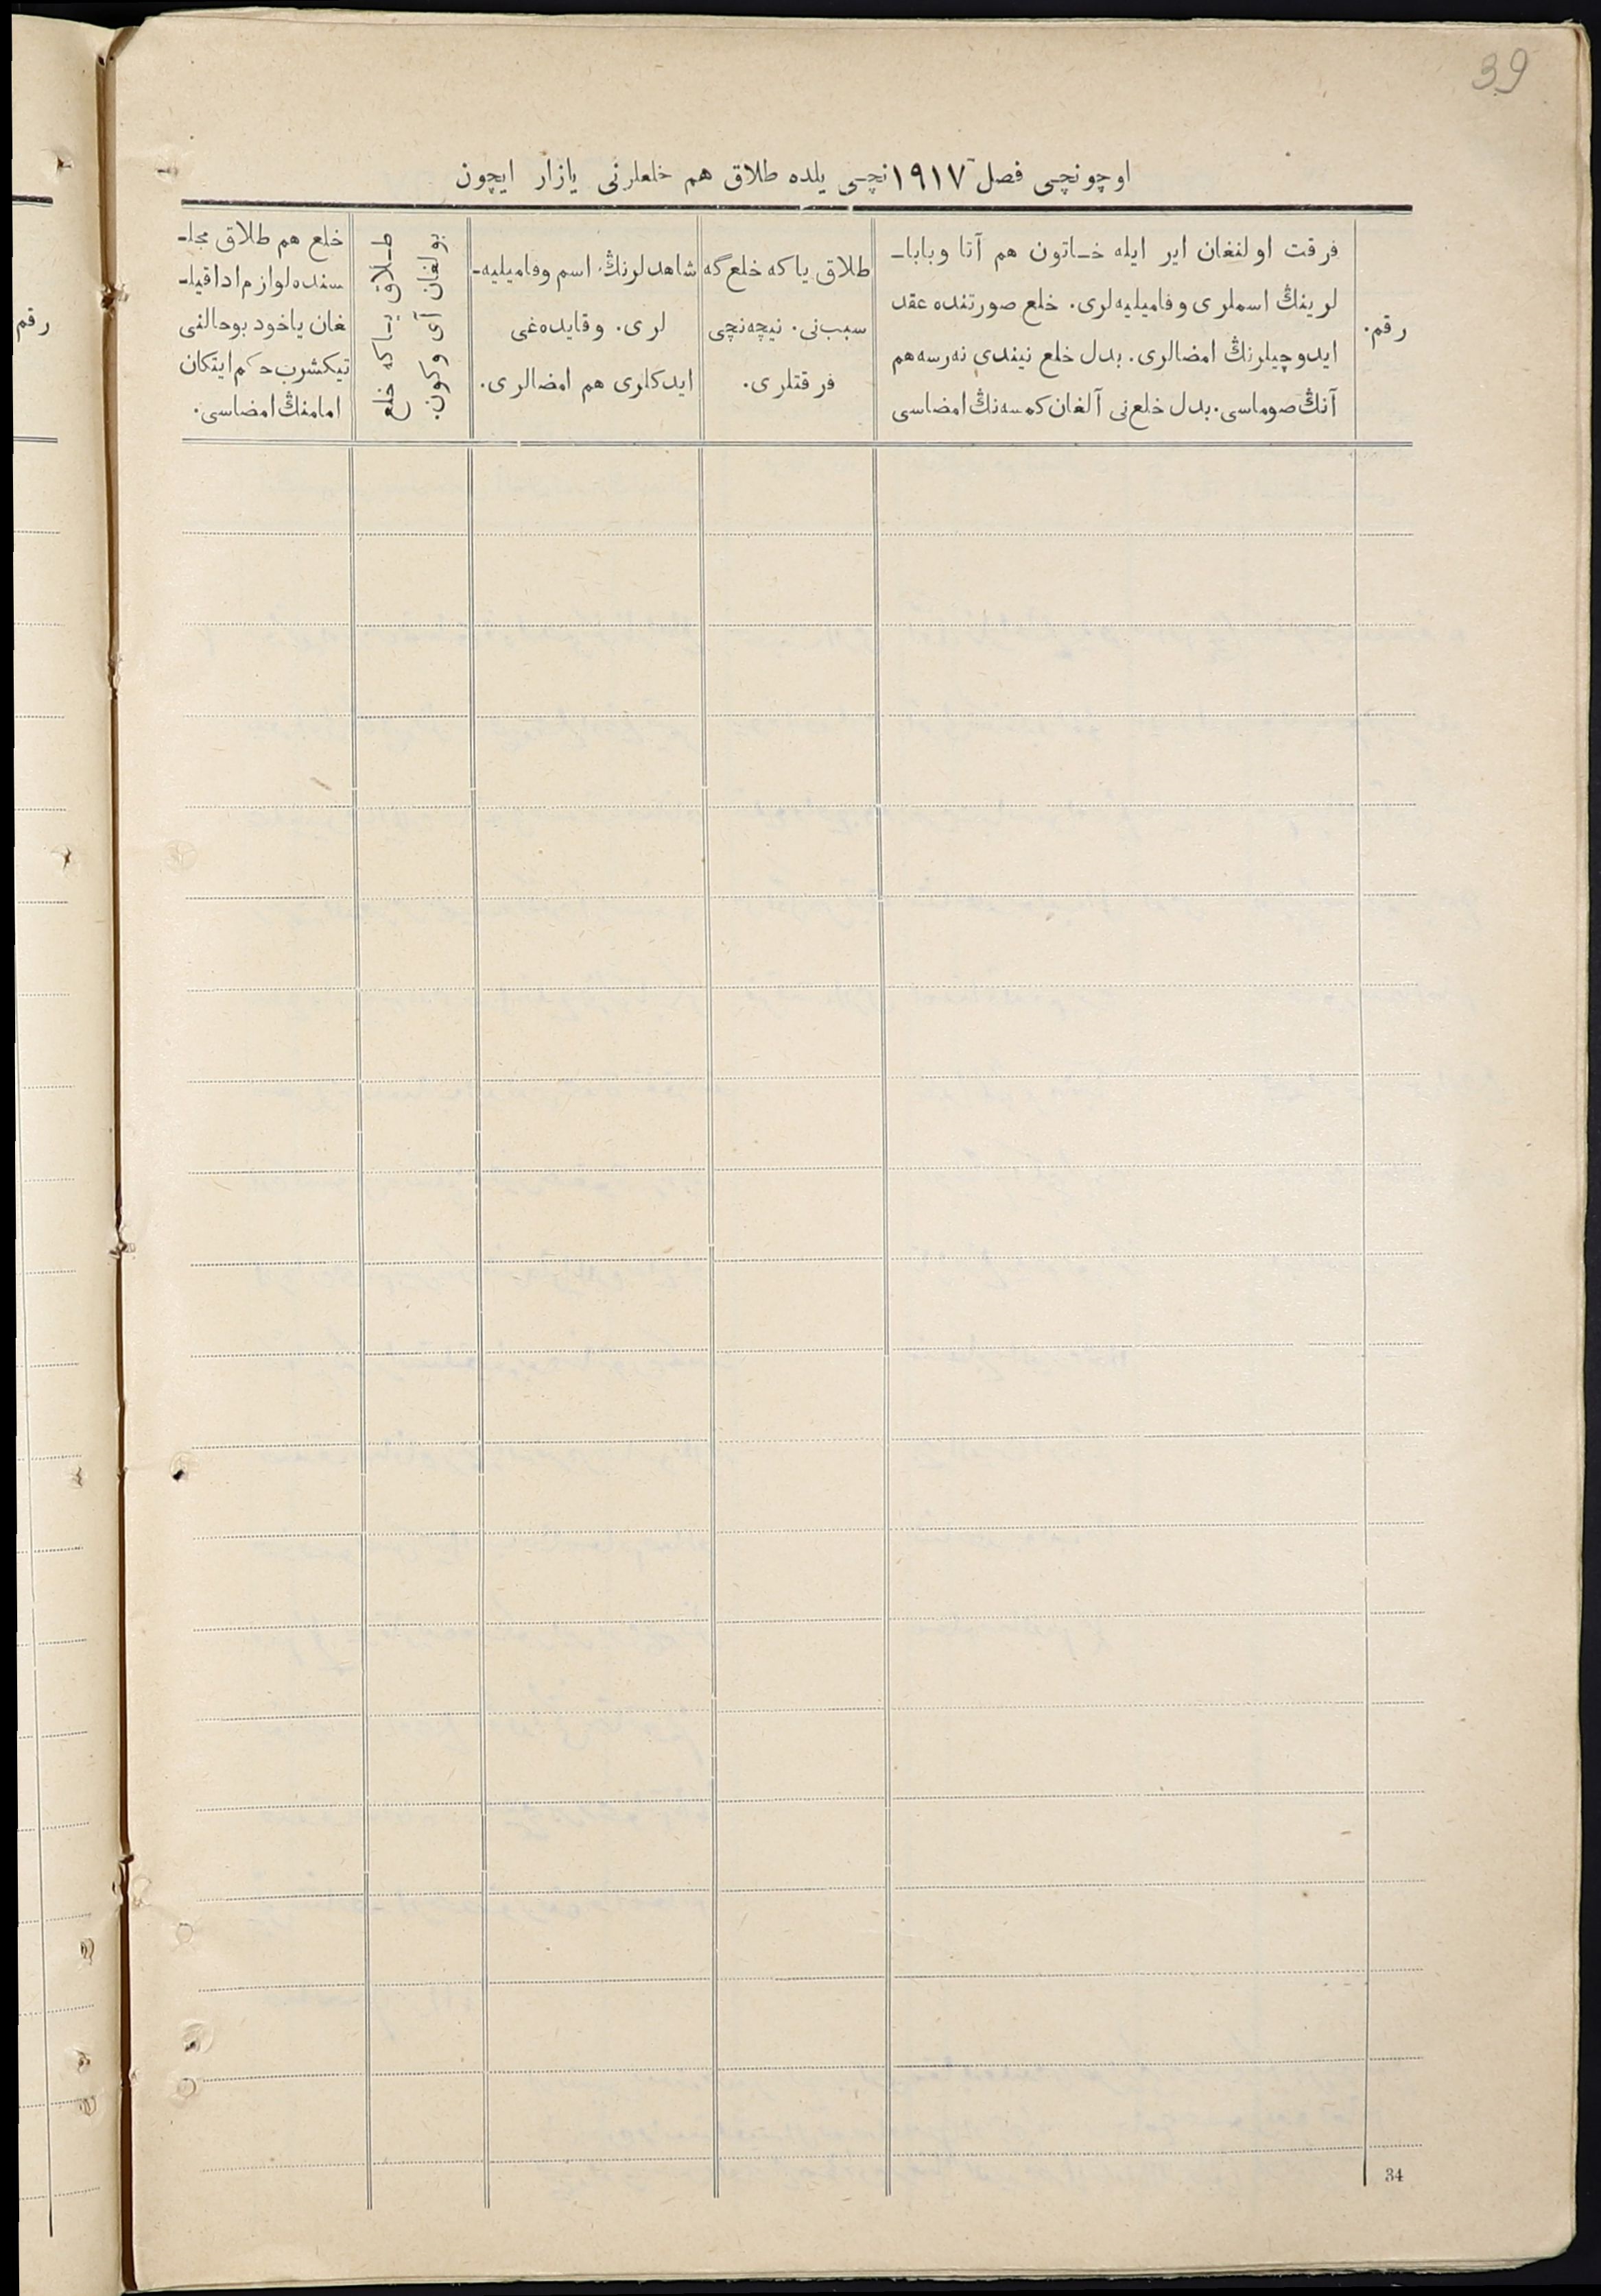 39
اوچونچى فصل ١٩١٧نچى يلده طلاق هم خلعلرنى يازار ايچون
رقم.
فرقت اولنغان اير ايله خـاتون هم آتا وباباـ
لرينڭ اسملرى وفاميليه‌لرى. خلع صورتنده عقد
ايدوچيلرنڭ امضالرى. بدل خلع نيندى نه‌رسه هم
آنڭ صوماسى. بدل خلع‌نى آلغان كمسه‌نڭ امضاسى
طلاق ياكه خلع گه
سبب‌نى. نيچه‌نچى
فرقتلرى.
شاهدلرنڭ اسم وفاميليه‌ـ
لرى. وقايده‌غى
ايدكلرى هم امضالرى.
طـلاق يـاكه خلع
بولغان آى وكون.
خلع هم طلاق مجلـ
سنده لوازم ادا قيلـ
غان ياخود بوحالنى
تيكشرب حكم ايتكان
امامنڭ امضاسى.
رقم
34